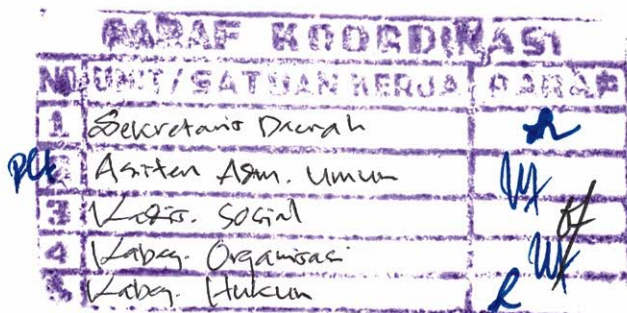 PARAF KOORDINASI
NO UNIT/SATUAN KERJA PARAF
1 Sekretaris Daerah
Plt 2 Asisten Adm. Umum
3 Kadis. Sosial
4 Kabag. Organisasi
5 Kabag. Hukum